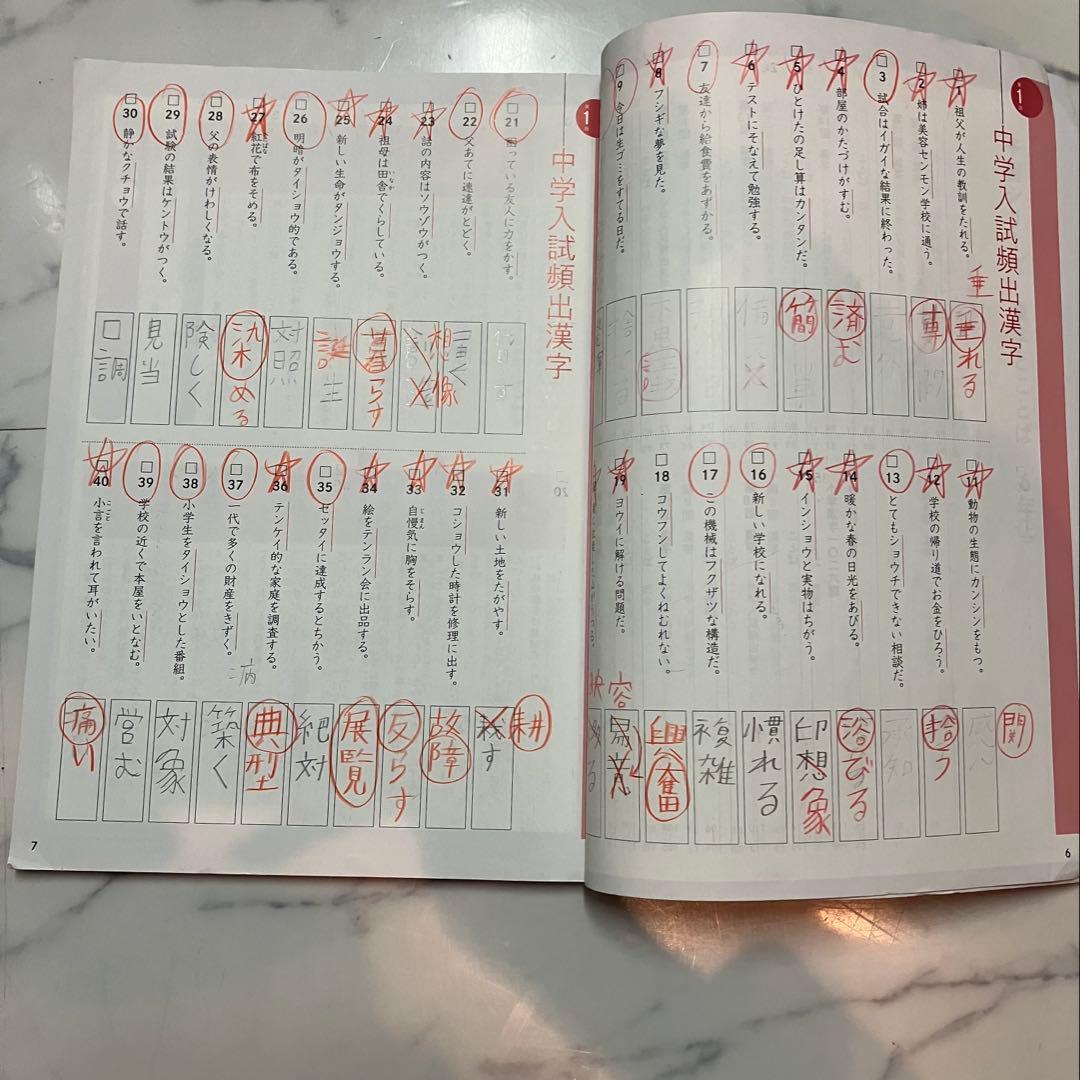 中学入試頻出漢字
1 祖父が人生の教訓をたれる。
垂
垂れる
2 姉は美容センモン学校に通う。
専門
3 試合はイガイな結果に終わった。
4 部屋のかたづけがすむ。
済む
5 ひとけたの足し算はカンタンだ。
簡単
6 テストにそなえて勉強する。
備
7 友達から給食費をあずかる。
8 フシギな夢を見た。
9 今日は生ゴミをすてる日だ。
捨てる
11 動物の生態にカンシンをもつ。
関
感心
12 学校の帰り道でお金をひろう。
拾う
13 とてもショウチできない相談だ。
承知
14 暖かな春の日光をあびる。
浴びる
15 インショウと実物はちがう。
印想象
16 新しい学校になれる。
慣れる
17 この機械はフクザツな構造だ。
複雑
18 コウフンしてよくねむれない。
興奮
19 ヨウイに解ける問題だ。
容
易意
6
1
中学入試頻出漢字
21 困っている友人に力をかす。
す
22 父あてに速達がとどく。
23 話の内容はソウゾウがつく。
想像
24 祖母は田舎でくらしている。
いなか
暮らす
25 新しい生命がタンジョウする。
誕生
26 明暗がタイショウ的である。
対照
27 紅花で布をそめる。
べにばな
染める
28 父の表情がけわしくなる。
険しく
29 試験の結果はケントウがつく。
見当
30 静かなクチョウで話す。
口調
31 新しい土地をたがやす。
耕
す
32 コショウした時計を修理に出す。
故障
33 自慢気に胸をそらす。
じまん
反らす
34 絵をテンラン会に出品する。
展覧
35 ゼッタイに達成するとちかう。
絶対
36 テンケイ的な家庭を調査する。
典型
37 一代で多くの財産をきずく。
築く
38 小学生をタイショウとした番組。
対象
39 学校の近くで本屋をいとなむ。
営む
40 小言を言われて耳がいたい。
こごと
病
痛い
7